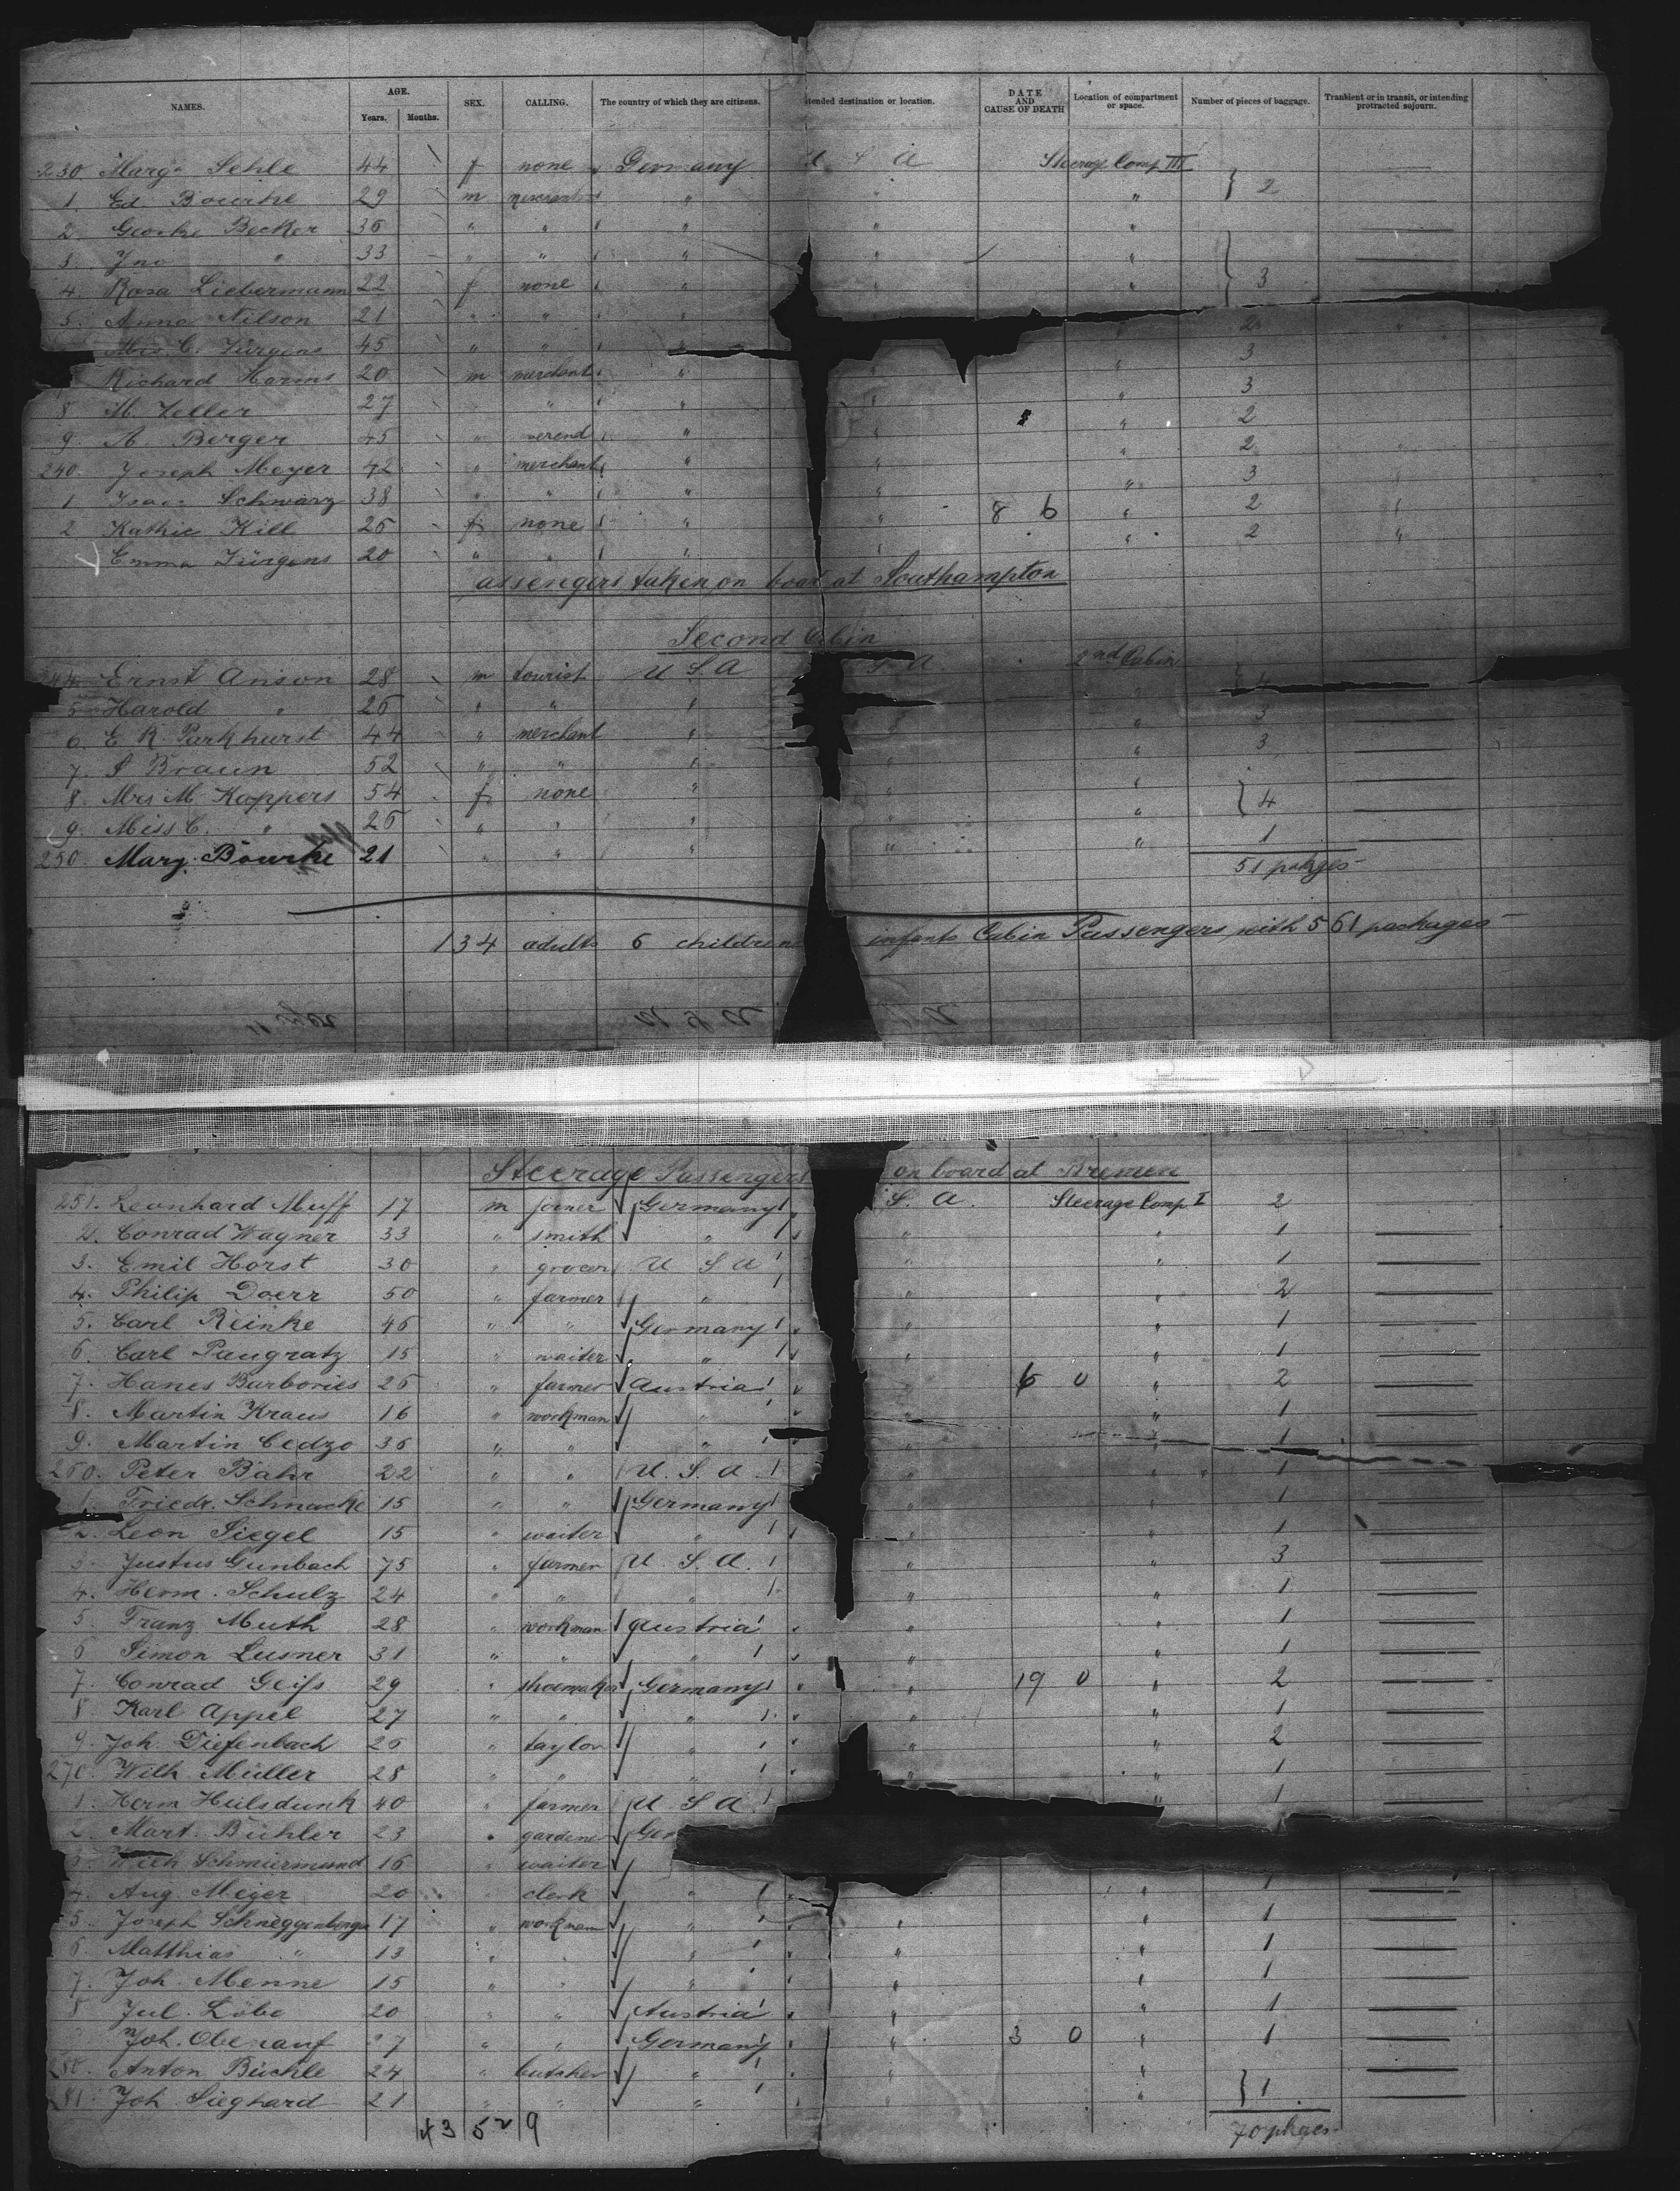 NAMES. AGE. SEX. CALLING. The country of which they are citizens. tended destination or location. DATE AND CAUSE OF DEATH Location of compartment or space. Number of pieces of baggage. Transient or in transit, or intending protracted sojourn.
Years. Months.
230 Marga Sehle 44 f none Germany U S A Steerage Comp III
1. Ed Bourke 29 m " " " } 2
2. George Becker 36 " " " " "
3. Jno " 33 " " " " "
4. Rosa Liebermann 22 f none " " " } 3
5. Anna Nilson 21 " " " 2 "
Mrs C. Jürgens 45 " " " " 3
Richard Harms 20 m merchant " " " 3
8 M. Zeller 27 " " " " 2
9. A. Berger 45 " " " " 2
240. Joseph Meyer 42 " merchant " " " 3
1 Isaac Schwarz 38 " " " " 8 6 " 2
2 Kathie Kill 26 f none " " " 2 "
Emma Jürgens 20 " " " "
assengers taken on board at Southampton
Second Cabin
244 Ernst Anson 28 m tourist U S A S. A. 2nd Cabin } 4
5 Harold " 26 " " " " " 3
6. E R. Parkhurst 44 " merchant " " " 3
7. S Braun 52 " " " " "
8. Mrs M. Kappers 54 f none " " " } 4
9. Miss C. " 26 " " " " "
250. Mary Bourke 21 " " " " " 1
51 pakges
134 adults 6 children infants Cabin Passengers with 561 packages
Steerage Passengers on board at Bremen
251. Leonhard Muff 17 m joiner Germany S. A. Steerage Comp I 2
2. Conrad Wagner 33 " smith " " " 1
3. Emil Horst 30 " grocer U S A " " 1
4. Philip Doerr 50 " farmer " " " 2
5. Carl Reinke 46 " " Germany " " 1
6. Carl Pangratz 15 " waiter " " " 1
7. Hanes Barbories 26 " farmer Austria " 6 0 " 2
8. Martin Kraus 16 " workman " " " 1
9. Martin Cedzo 36 " " " " " 1
260. Peter Bahr 22 " " U. S. A " " 1
1. Friedr. Schnacke 15 " " Germany " " 1
2. Leon Siegel 15 " waiter " " " 1
3. Justus Gunbach 75 " farmer U S. A. " " 3
4. Herm. Schulz 24 " " " " " 1
5 Franz Muth 28 " workman Austria " " 1
6 Simon Lusner 31 " " " " " 1
7. Conrad Geiſs 29 " shoemaker Germany " 19 0 " 2
8 Karl Appel 27 " " " " " 1
9. Joh. Diefenbach 26 " taylor " " " 2
270. Wilh. Müller 28 " " " " " 1
1. Herm Hülsdunk 40 " farmer U S A " 1
2. Mart. Bühler 23 " gardener Ger
3. Wilh Schmürmund 16 " waiter
4. Aug. Meyer 20 " clerk " " 1
5. Joseph Schneggenberger 17 " workman " " " 1
6. Matthias " 13 " " " " " 1
7. Joh. Menne 15 " " " " " 1
8 Jul. Löbe 20 " " Austria " " 1
Joh. Oberauf 27 " " Germany " 3 0 " 1
280. Anton Büchle 24 " butcher " " "
281. Joh Sieghard 21 " " " " " } 1
43 52 9 70 pkges